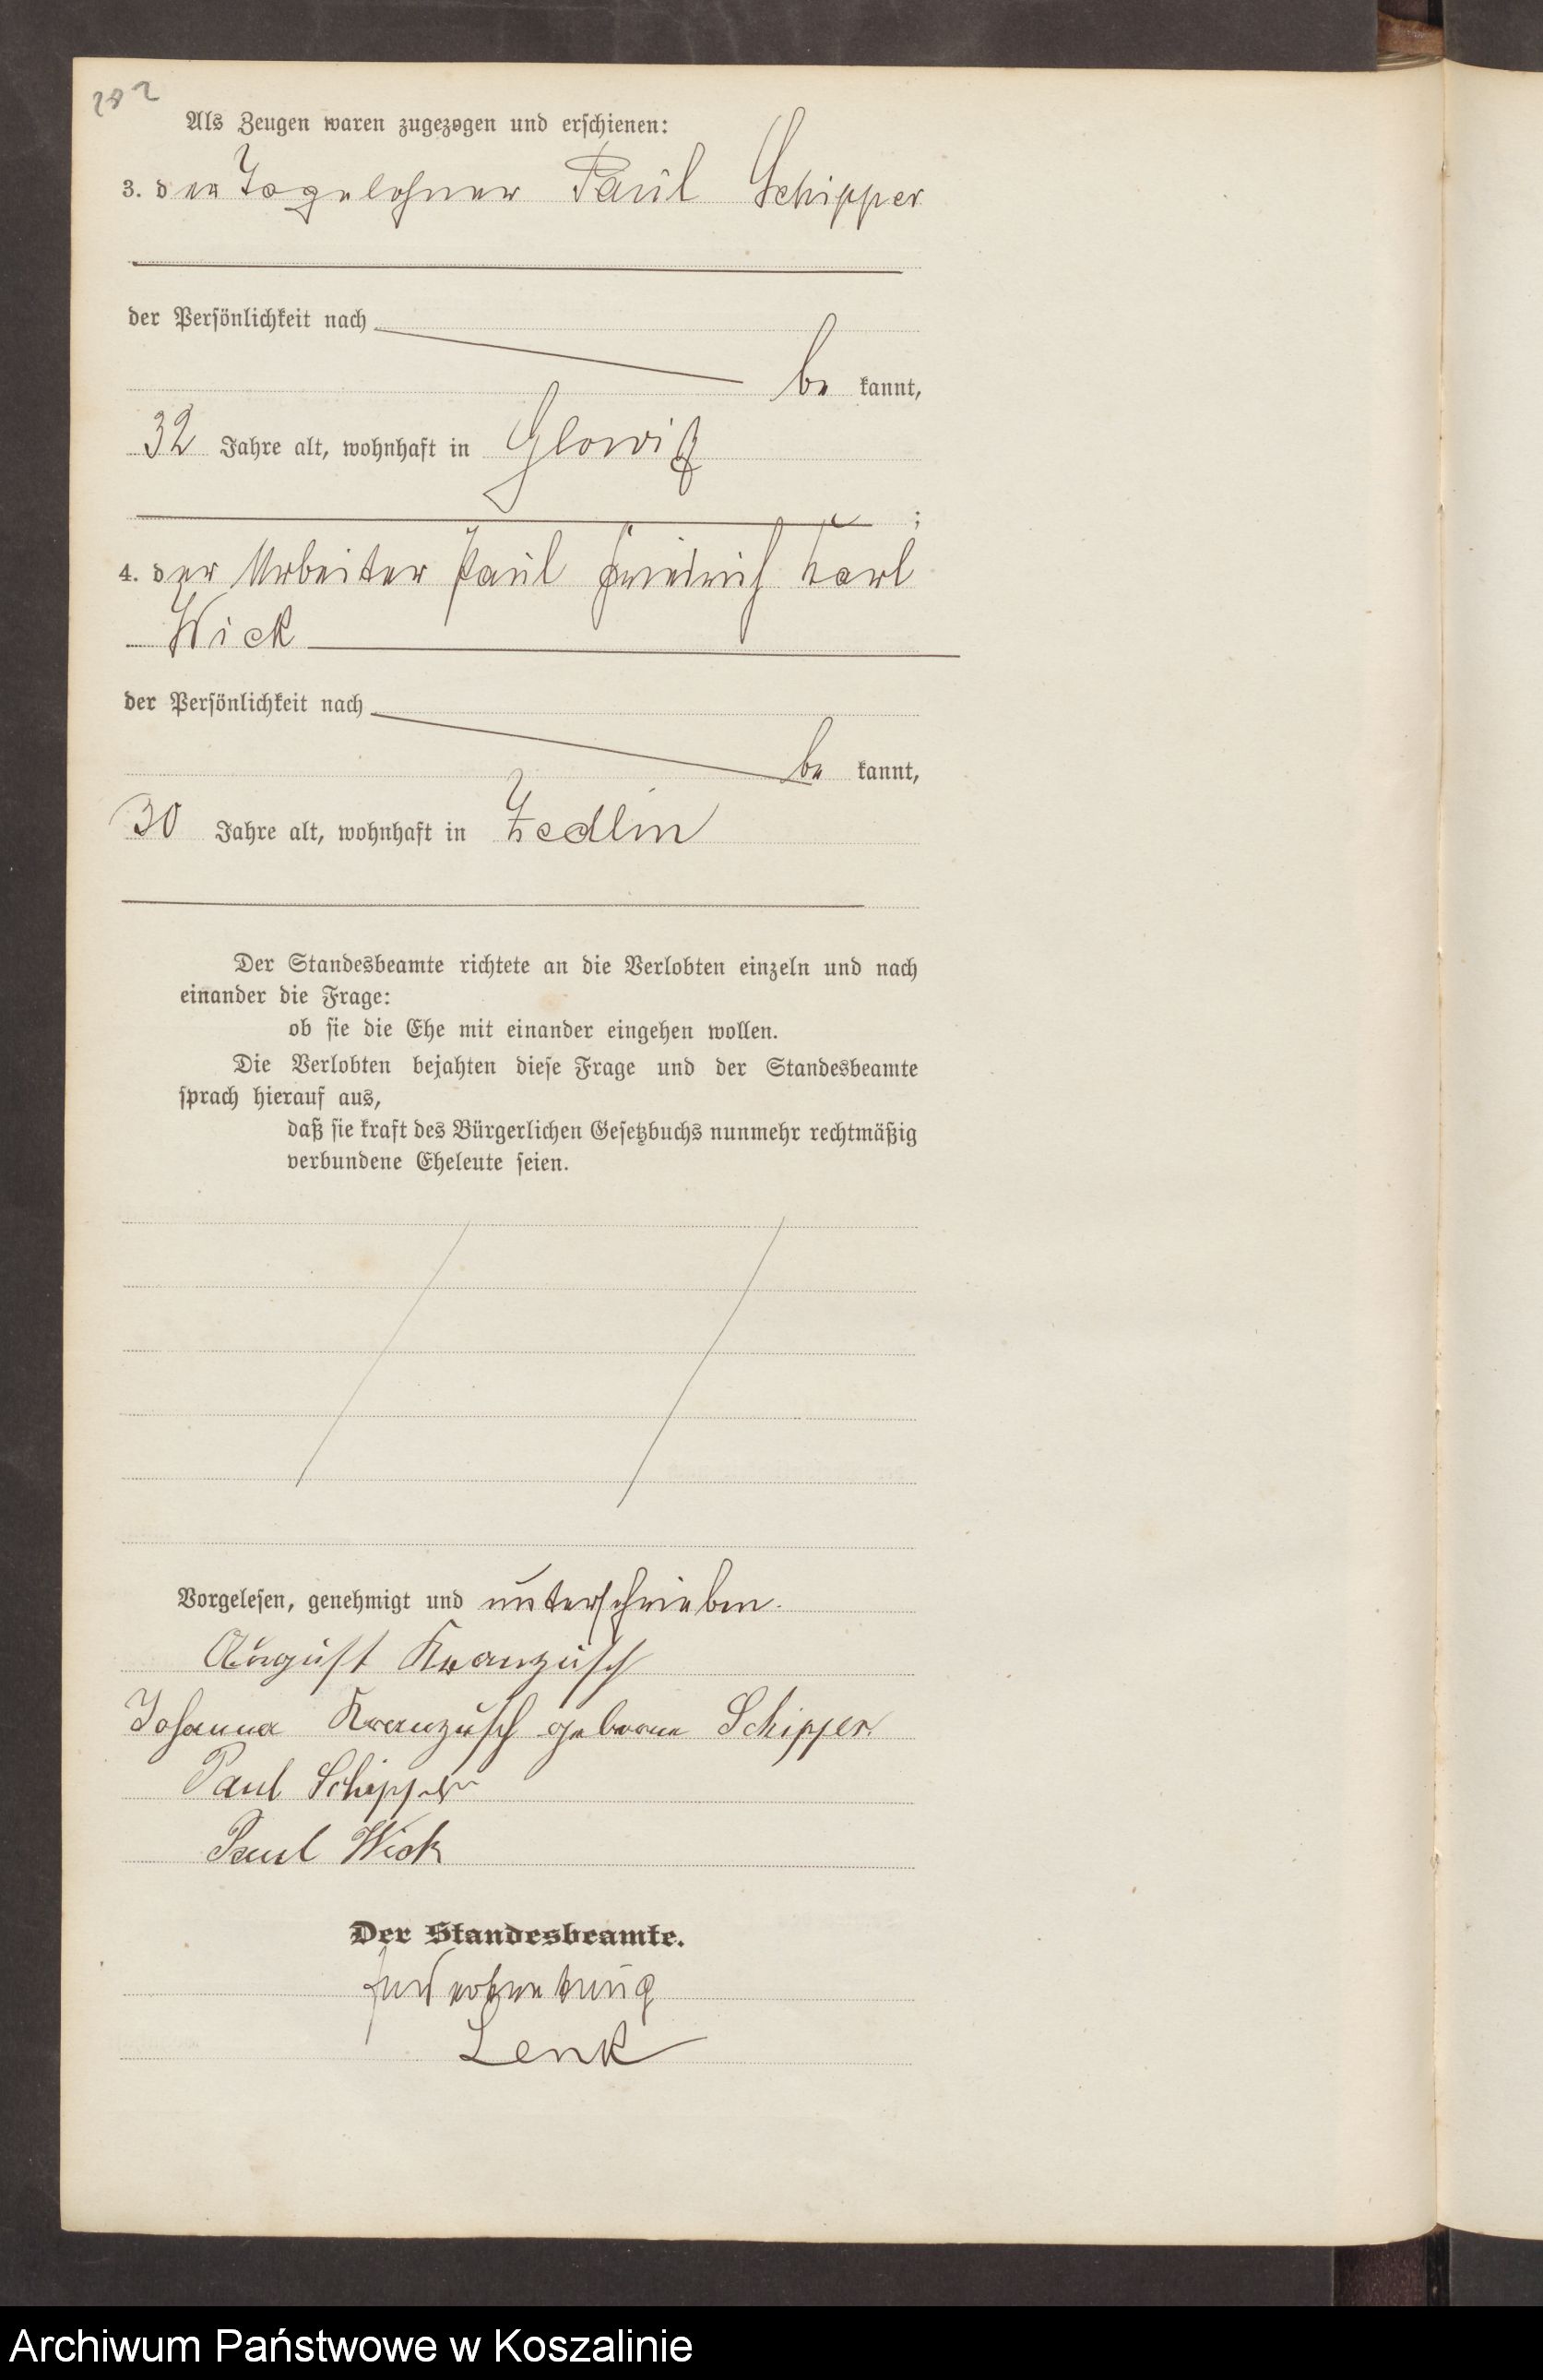 282
Als Zeugen waren zugezogen und erschienen:
3. der Tagelohner Paul Schipper
der Persönlichkeit nach
be kannt,
32 Jahre alt, wohnhaft in Glowitz
;
4. der Arbeiter Paul Friedrich Karl
Wick
der Persönlichkeit nach
be kannt,
30 Jahre alt, wohnhaft in Zedlin
Der Standesbeamte richtete an die Verlobten einzeln und nach
einander die Frage:
ob sie die Ehe mit einander eingehen wollen.
Die Verlobten bejahten diese Frage und der Standesbeamte
sprach hierauf aus,
daß sie kraft des Bürgerlichen Gesetzbuchs nunmehr rechtmäßig
verbundene Eheleute seien.
Vorgelesen, genehmigt und unterschrieben.
August Kranzusch
Johanna Kranzusch geborne Schipper.
Paul Schipper
Paul Wick
Der Standesbeamte.
In Vertretung
Lenk
Archiwum Państwowe w Koszalinie